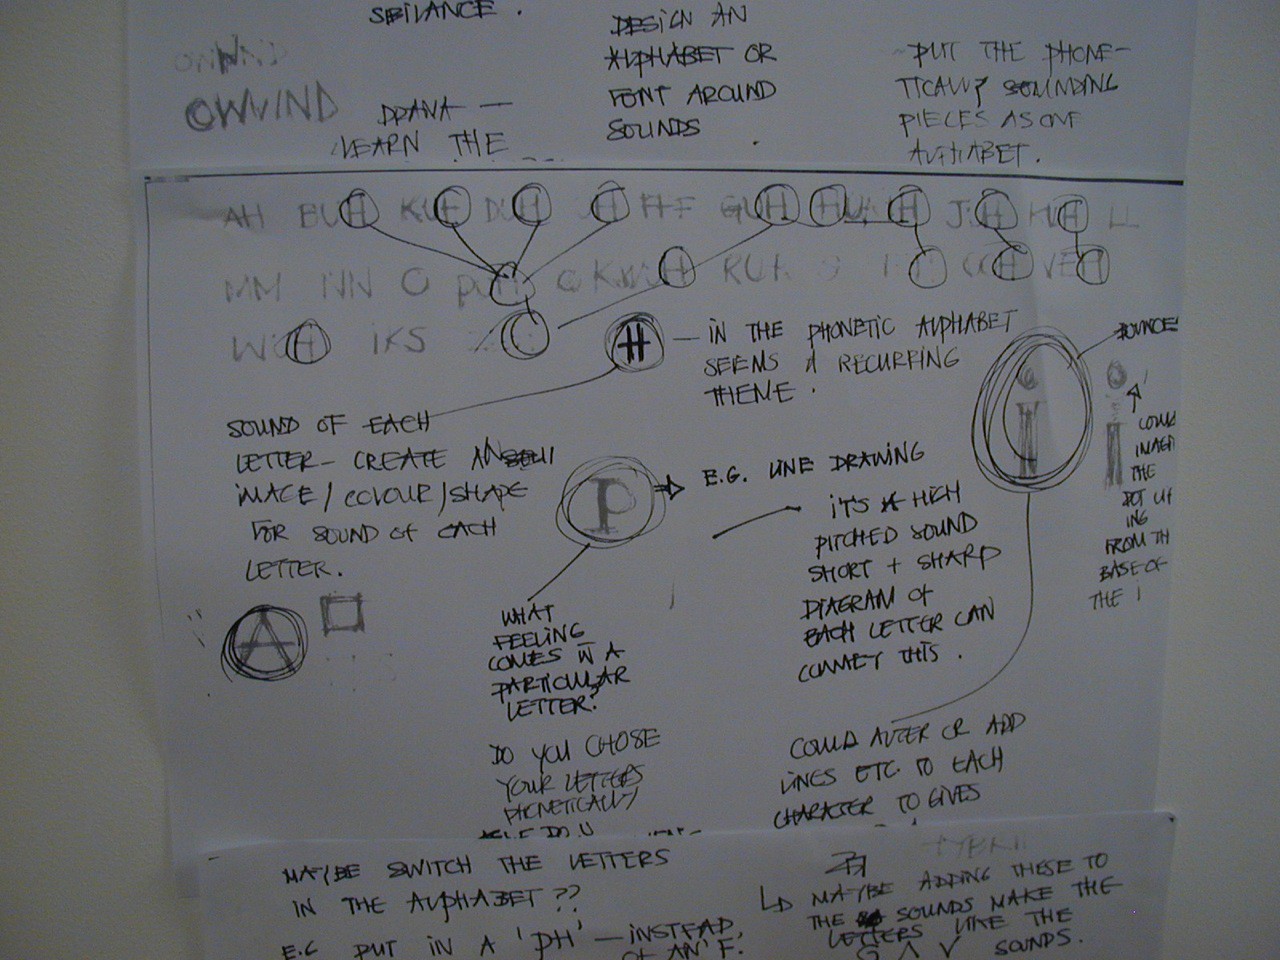 SBILANCE.
DESIGN AN
ALPHABET OR
FONT AROUND
SOUNDS.
PUT THE PHONE-
TICALLY SOUNDING
PIECES AS ONE
ALPHABET.
OWVIND
LEARN THE
AH BUH KUH DUH FF GUH HUH JUH KUH LL
MM NN O PUH Q KWUH RUH VEH
WUH IKS
H — IN THE PHONETIC ALPHABET
SEEMS A RECURRING
THEME.
SOUND OF EACH
LETTER — CREATE AN
IMAGE / COLOUR / SHAPE
FOR SOUND OF EACH
LETTER.
A
P
E.G. LINE DRAWING
ITS A HIGH
PITCHED SOUND
SHORT + SHARP
DIAGRAM OF
EACH LETTER CAN
CONVEY THIS.
WHAT
FEELING
COMES IN A
PARTICULAR
LETTER?
DO YOU CHOSE
YOUR LETTERS
PHONETICALLY
i
BOUNCE
i
COULD
IMAGI
THE
DOT
ING
FROM TH
BASE OF
THE I
COULD ALTER OR ADD
LINES ETC. TO EACH
CHARACTER TO GIVES
MAYBE SWITCH THE LETTERS
IN THE ALPHABET??
E.G PUT IN A 'PH' — INSTEAD,
OF AN 'F.
MAYBE ADDING THESE TO
THE SOUNDS MAKE THE
LETTERS LIKE THE
SOUNDS.